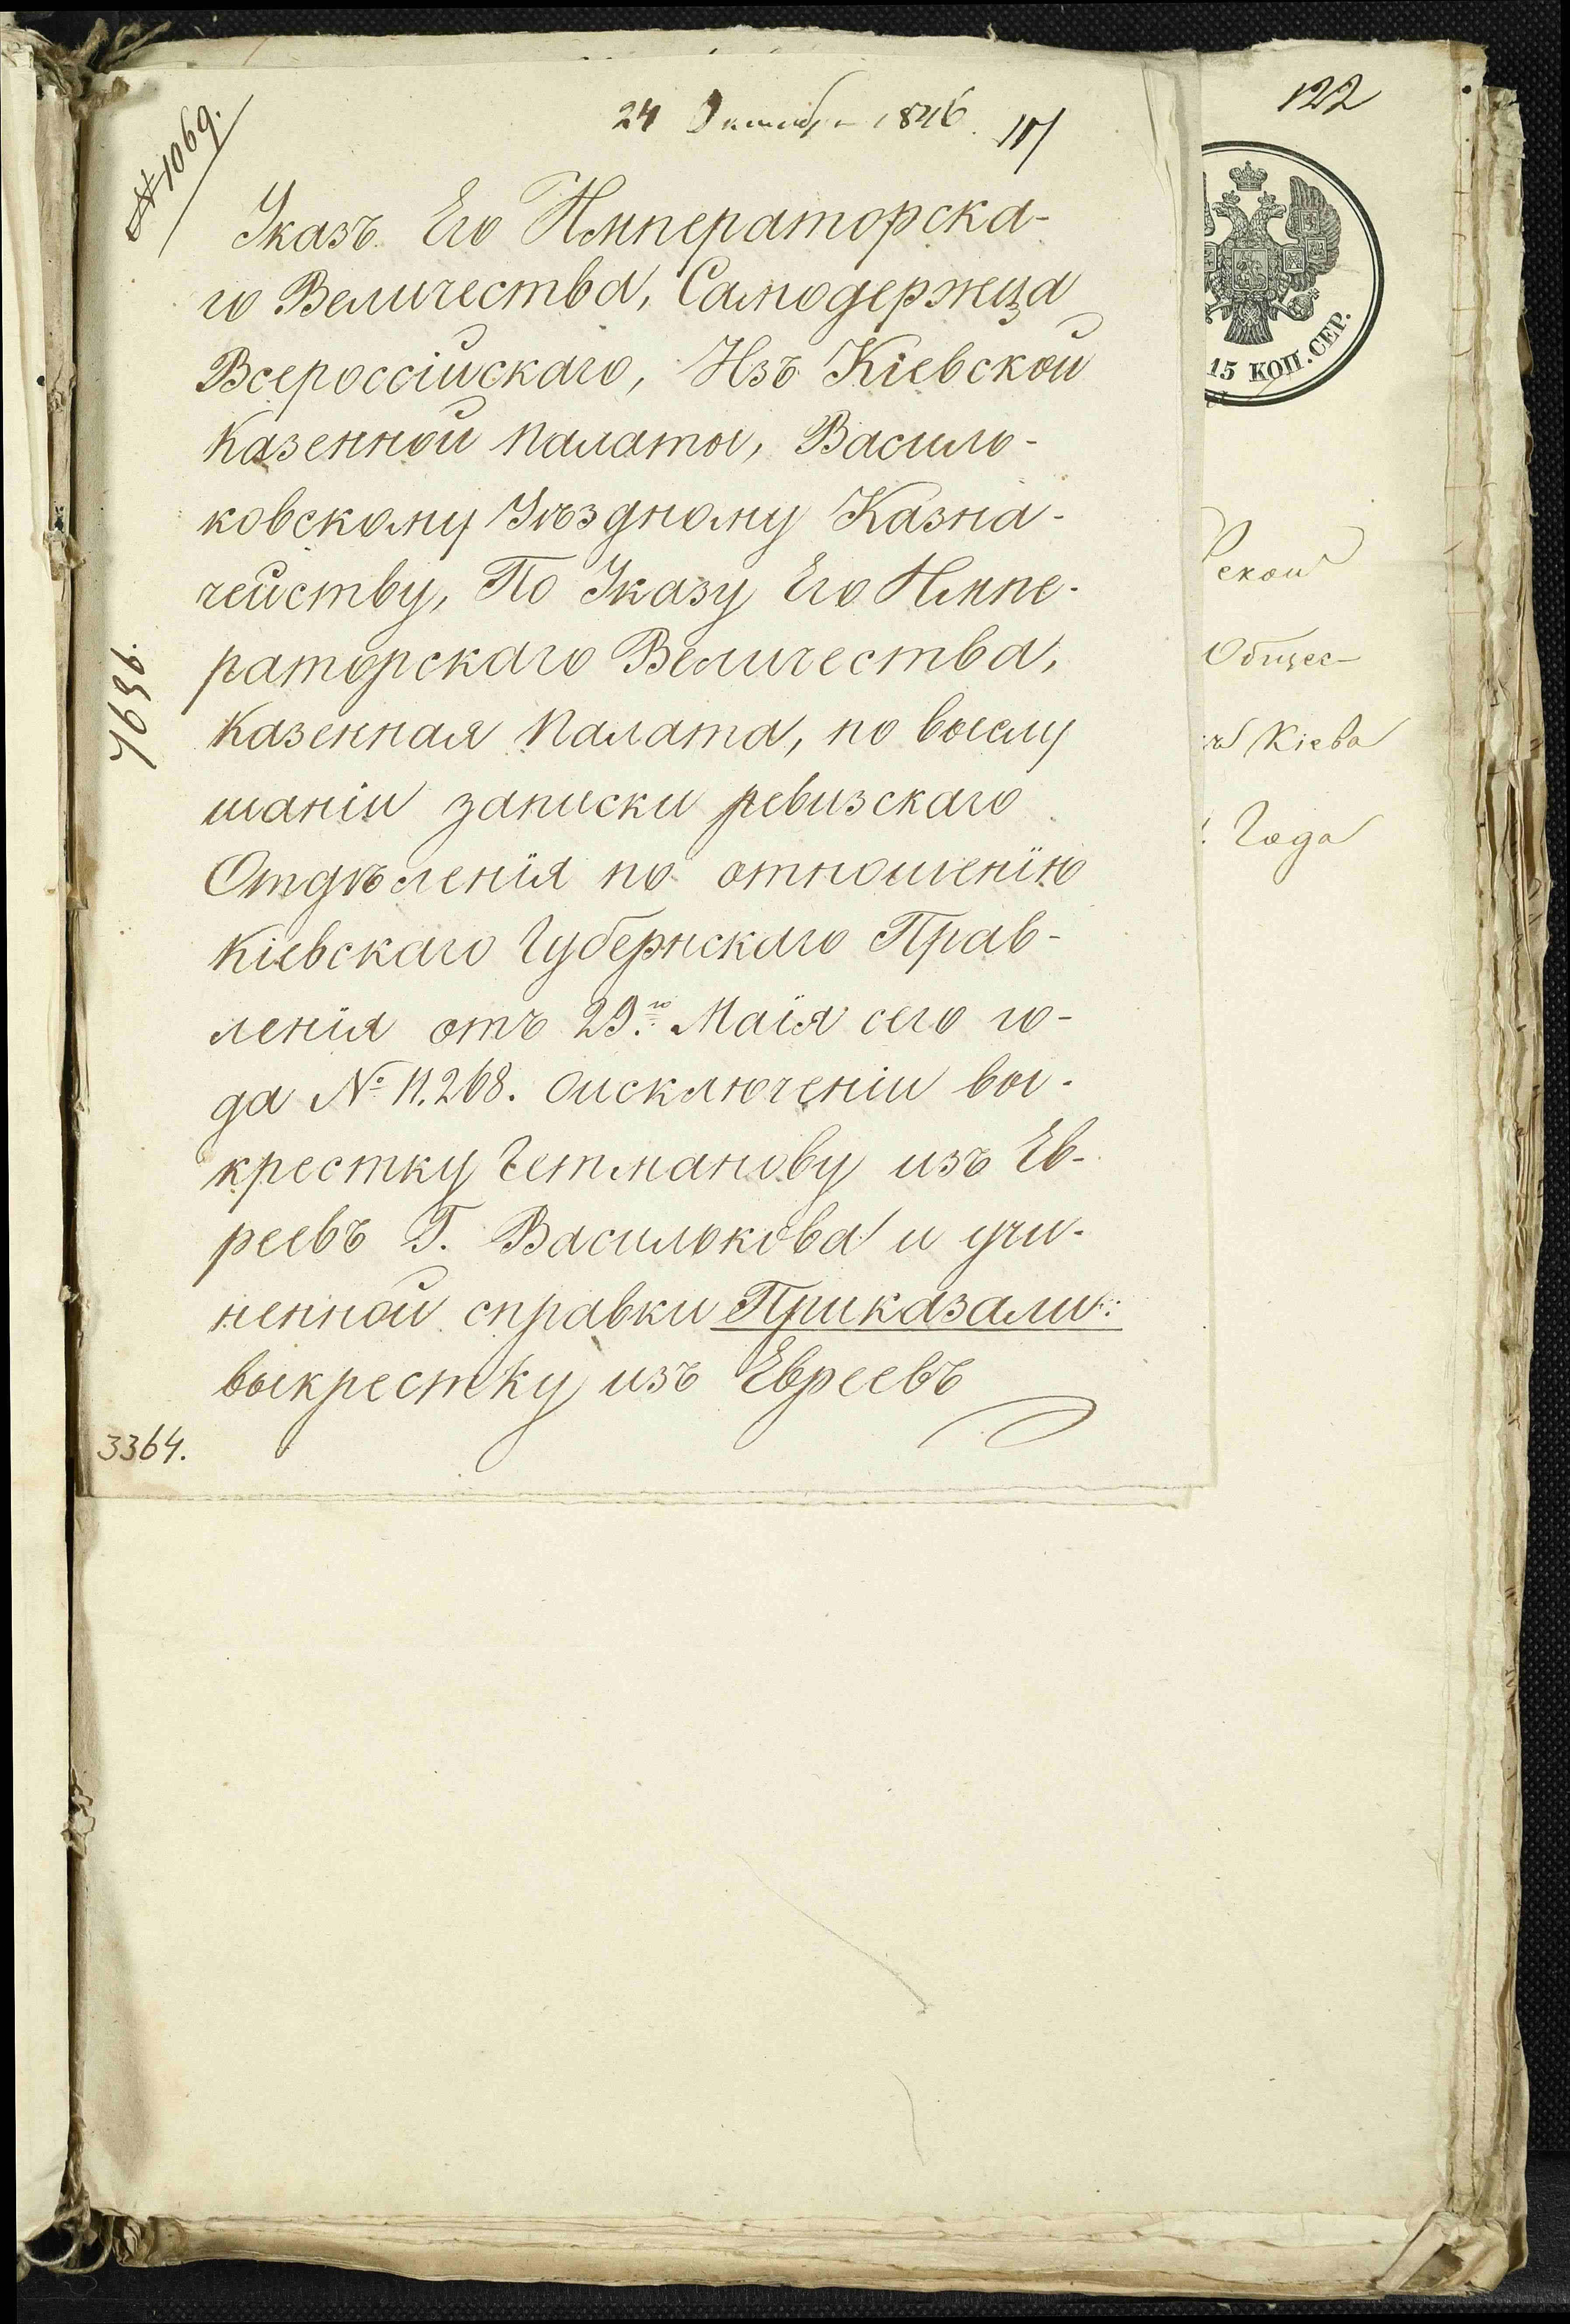 № 1069.
24 Октября 1846.
122
Указъ Его Императорска-
го Величества, Самодержца
Всероссійскаго, Изъ Кіевской
Казенной Палаты, Василь-
ковскому Уѣздному Казна-
чейству, По Указу Его Импе-
раторскаго Величества,
Казенная Палата, по выслу
шаніи записки ревизскаго
Отдѣленія по отношенію
Кіевскаго Губернскаго Прав-
ленія отъ 29.го Маія сего го-
да № 11.268. о исключеніи вы-
крестку Гетманову изъ Ев-
реевъ Г. Василькова и учи-
ненной справки Приказали:
выкрестку изъ Евреевъ
7696.
3364.
15 КОП. СЕР.
ской
Общес-
Кіева
Года